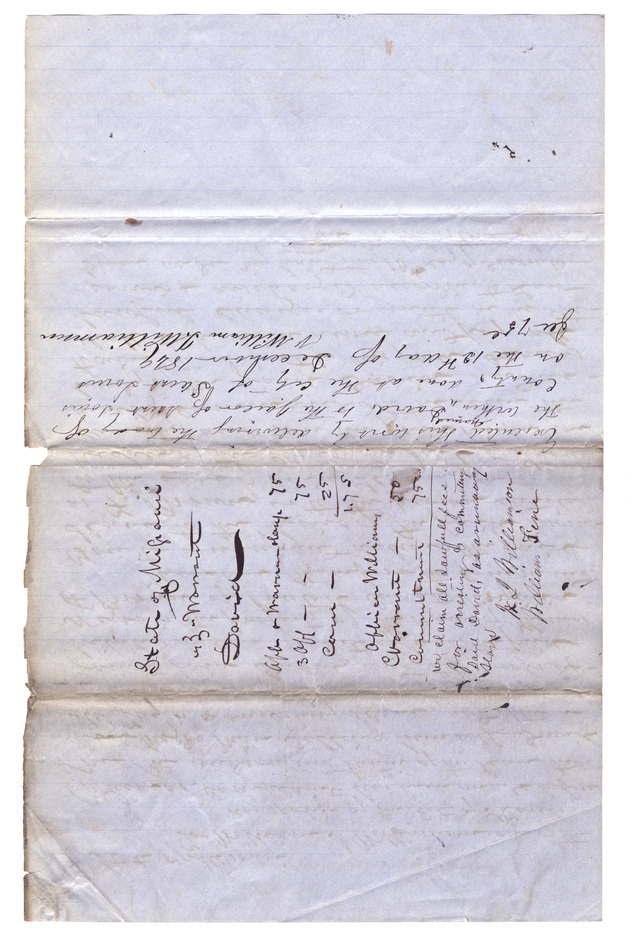 Executed this writ by delivering the body of
the within named David to the Jaoler of Saint Louis
County, done at the City of Saint Louis
on the 12th day of December 1849
William
fee 75c
State of Missouri
vs } Warrant
David
75
3 Off - - 75
Com - 25
1.75
Officer William
Warrant - 50
Commitment 75
we claim all lawfull fees
for arresting & commiting
said David, as a runaway
Slave
Williamson
William